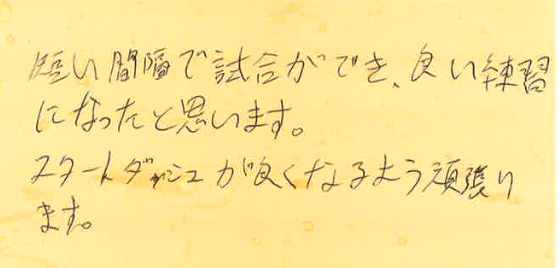 短い間隔で試合ができ、良い練習
になったと思います。
スタートダッシュが良くなるよう頑張り
ます。